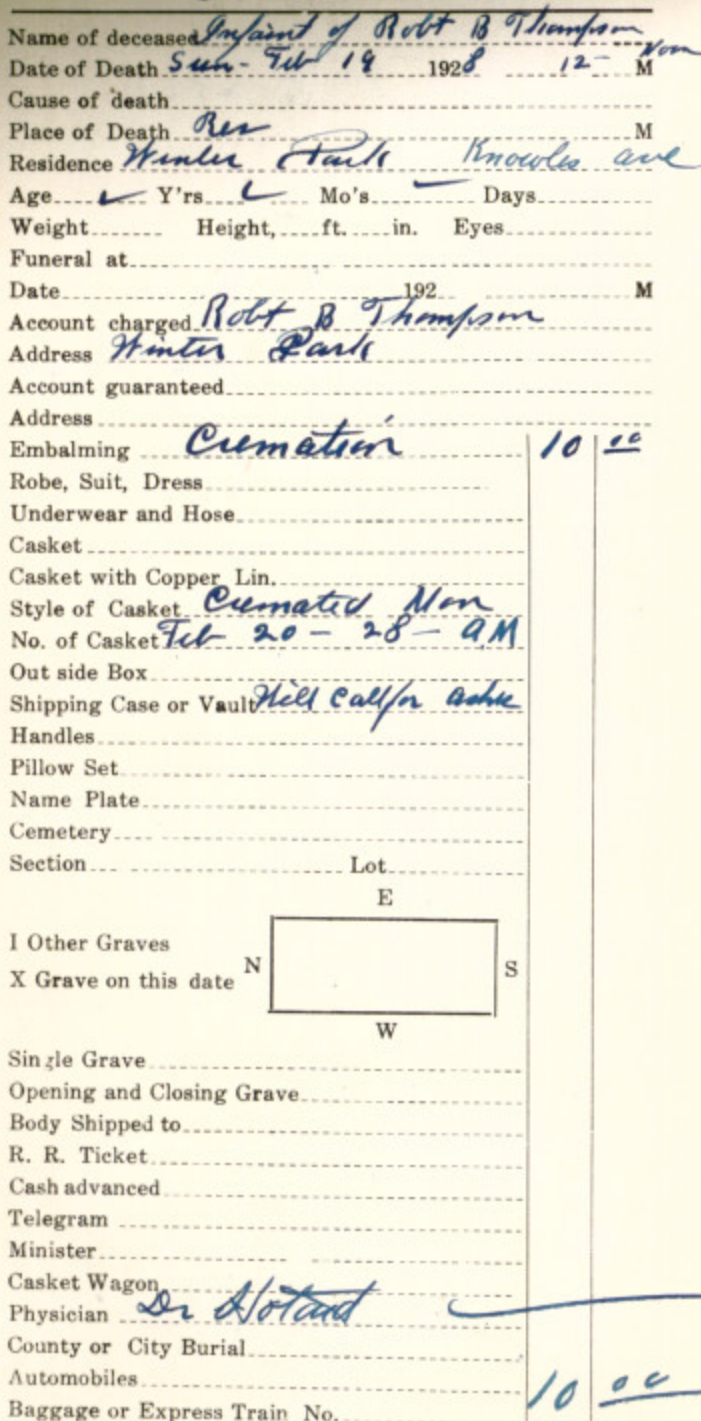 Name of deceased Infaint of Robt B Thompson
Date of Death Sun - Feb 19 1928 12- Noon M
Cause of death
Place of Death Res M
Residence Winter Park Knowles ave
Age Y'rs Mo's Days
Weight Height, ft. in. Eyes
Funeral at
Date 192 M
Account charged Robt B Thompson
Address Winter Park
Account guaranteed
Address
Embalming Cremation 10 00
Robe, Suit, Dress
Underwear and Hose
Casket
Casket with Copper Lin.
Style of Casket Cremated Mon
No. of Casket Feb 20 - 28 - A.M
Out side Box
Shipping Case or Vault Will Call for ashes
Handles
Pillow Set
Name Plate
Cemetery
Section Lot
E
I Other Graves
X Grave on this date N S
W
Single Grave
Opening and Closing Grave
Body Shipped to
R. R. Ticket
Cash advanced
Telegram
Minister
Casket Wagon
Physician Dr Hotard
County or City Burial
Automobiles 10 00
Baggage or Express Train No.